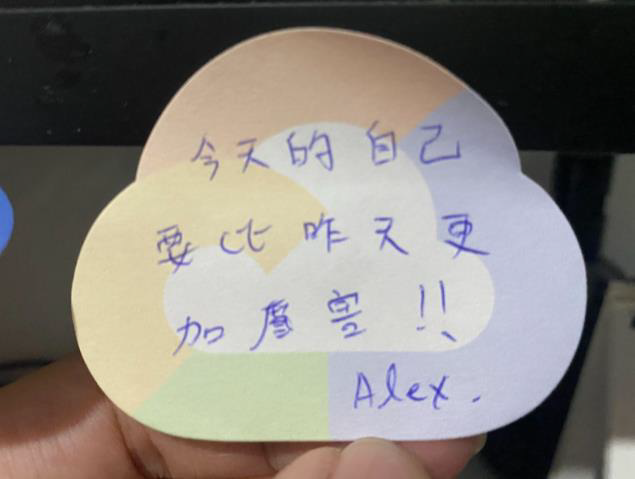 今天的自己
要比昨天更
加厲害!!
Alex.